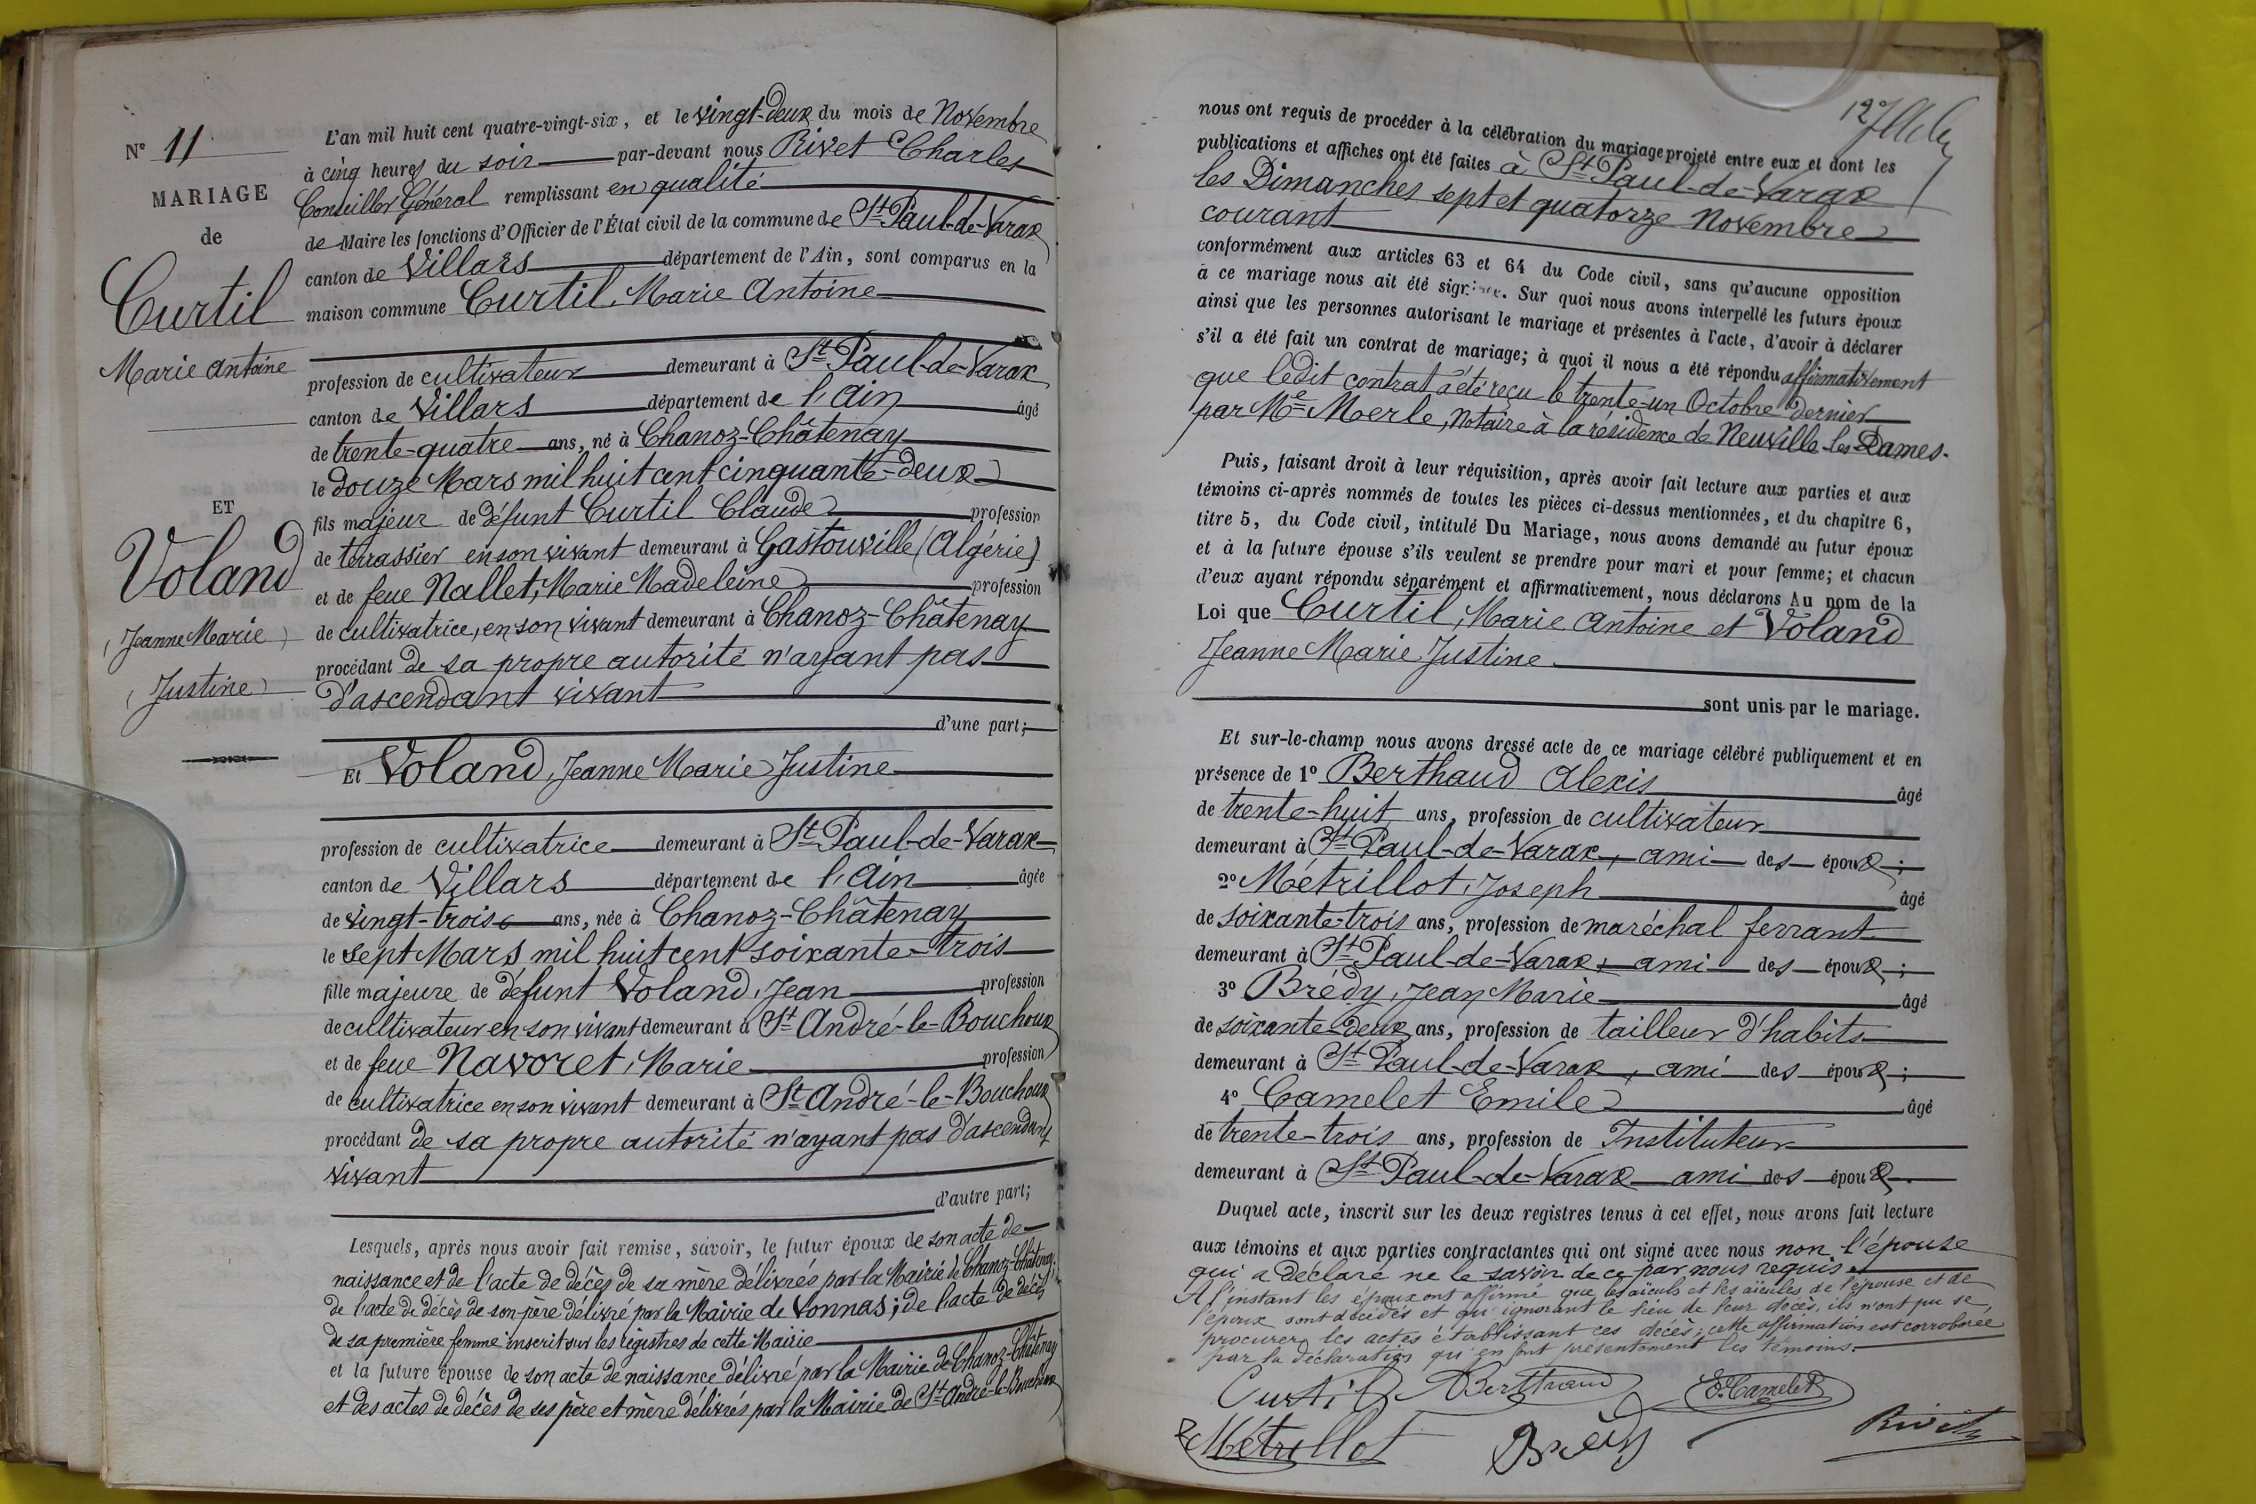 N° 11
MARIAGE
de
Curtil
Marie Antoine
ET
Voland
(Jeanne Marie)
(Justine)
L'an mil huit cent quatre-vingt-six, et le vingt-deux du mois de Novembre
à cinq heures du soir par-devant nous Rivet Charles
Conseiller Général remplissant en qualité
de Maire les fonctions d'Officier de l'État civil de la commune de St Paul-de-Varax
canton de Villars département de l'Ain, sont comparus en la
maison commune Curtil, Marie Antoine
profession de cultivateur demeurant à St Paul-de-Varax
canton de Villars département de l'Ain âgé
de trente-quatre ans, né à Chanoz-Châtenay
le douze Mars mil huit cent cinquante-deux
fils majeur de défunt Curtil Claude profession
de terrassier en son vivant demeurant à Gastouville (Algérie)
et de feue Nallet, Marie Madeleine profession
de cultivatrice, en son vivant demeurant à Chanoz-Châtenay
procédant de sa propre autorité n'ayant pas
d'ascendant vivant
d'une part;
Et Voland, Jeanne Marie Justine
profession de cultivatrice demeurant à St Paul-de-Varax
canton de Villars département de l'Ain âgée
de vingt-trois ans, née à Chanoz-Châtenay
le sept Mars mil huit cent soixante-trois
fille majeure de défunt Voland, Jean profession
de cultivateur en son vivant demeurant à St André-le-Bouchoux
et de feue Navoret, Marie profession
de cultivatrice en son vivant demeurant à St André-le-Bouchoux
procédant de sa propre autorité n'ayant pas d'ascendant
vivant
d'autre part;
Lesquels, après nous avoir fait remise, savoir, le futur époux de son acte de
naissance et de l'acte de décès de sa mère délivrés par la Mairie de Chanoz-Châtenay;
de l'acte de décès de son père délivré par la Mairie de Vonnas; de l'acte de décès
de sa première femme inscrit sur les régistres de cette Mairie
et la future épouse de son acte de naissance délivré par la Mairie de Chanoz-Châtenay
et des actes de décès de ses père et mère délivrés par la Mairie de St André-le-Bouchoux
12
nous ont requis de procéder à la célébration du mariage projeté entre eux et dont les
publications et affiches ont été faites à St Paul-de-Varax
les Dimanches sept et quatorze Novembre
courant
conformément aux articles 63 et 64 du Code civil, sans qu'aucune opposition
à ce mariage nous ait été signifiée. Sur quoi nous avons interpellé les futurs époux
ainsi que les personnes autorisant le mariage et présentes à l'acte, d'avoir à déclarer
s'il a été fait un contrat de mariage; à quoi il nous a été répondu affirmativement
que ledit contrat a été reçu le trente-un Octobre dernier
par Me Merle, Notaire à la résidence de Neuville-les-Dames.
Puis, faisant droit à leur réquisition, après avoir fait lecture aux parties et aux
témoins ci-après nommés de toutes les pièces ci-dessus mentionnées, et du chapitre 6,
titre 5, du Code civil, intitulé Du Mariage, nous avons demandé au futur époux
et à la future épouse s'ils veulent se prendre pour mari et pour femme; et chacun
d'eux ayant répondu séparément et affirmativement, nous déclarons Au nom de la
Loi que Curtil, Marie Antoine et Voland
Jeanne Marie Justine
sont unis par le mariage.
Et sur-le-champ nous avons dressé acte de ce mariage célébré publiquement et en
présence de 1° Berthaud Alexis âgé
de trente-huit ans, profession de cultivateur
demeurant à St Paul-de-Varax, ami des époux;
2° Métrillot, Joseph âgé
de soixante-trois ans, profession de maréchal ferrant
demeurant à St Paul-de-Varax, ami des époux;
3° Brédy, Jean Marie âgé
de soixante-deux ans, profession de tailleur d'habits
demeurant à St Paul-de-Varax, ami des époux;
4° Camelet Emile âgé
de trente-trois ans, profession de Instituteur
demeurant à St Paul-de-Varax ami des époux.
Duquel acte, inscrit sur les deux registres tenus à cet effet, nous avons fait lecture
aux témoins et aux parties contractantes qui ont signé avec nous non l'épouse
qui a déclaré ne le savoir de ce par nous requis.
A l'instant les époux ont affirmé que les aïeuls et les aïeules de l'épouse et de
l'époux sont décédés et qu'ignorant le lieu de leur décès, ils n'ont pu se
procurer les actes établissant ces décès; cette affirmation est corroborée
par la déclaration qu'en font présentement les témoins.
Curtil ABerthaud E. Camelet
Métrillot Brédy Rivet